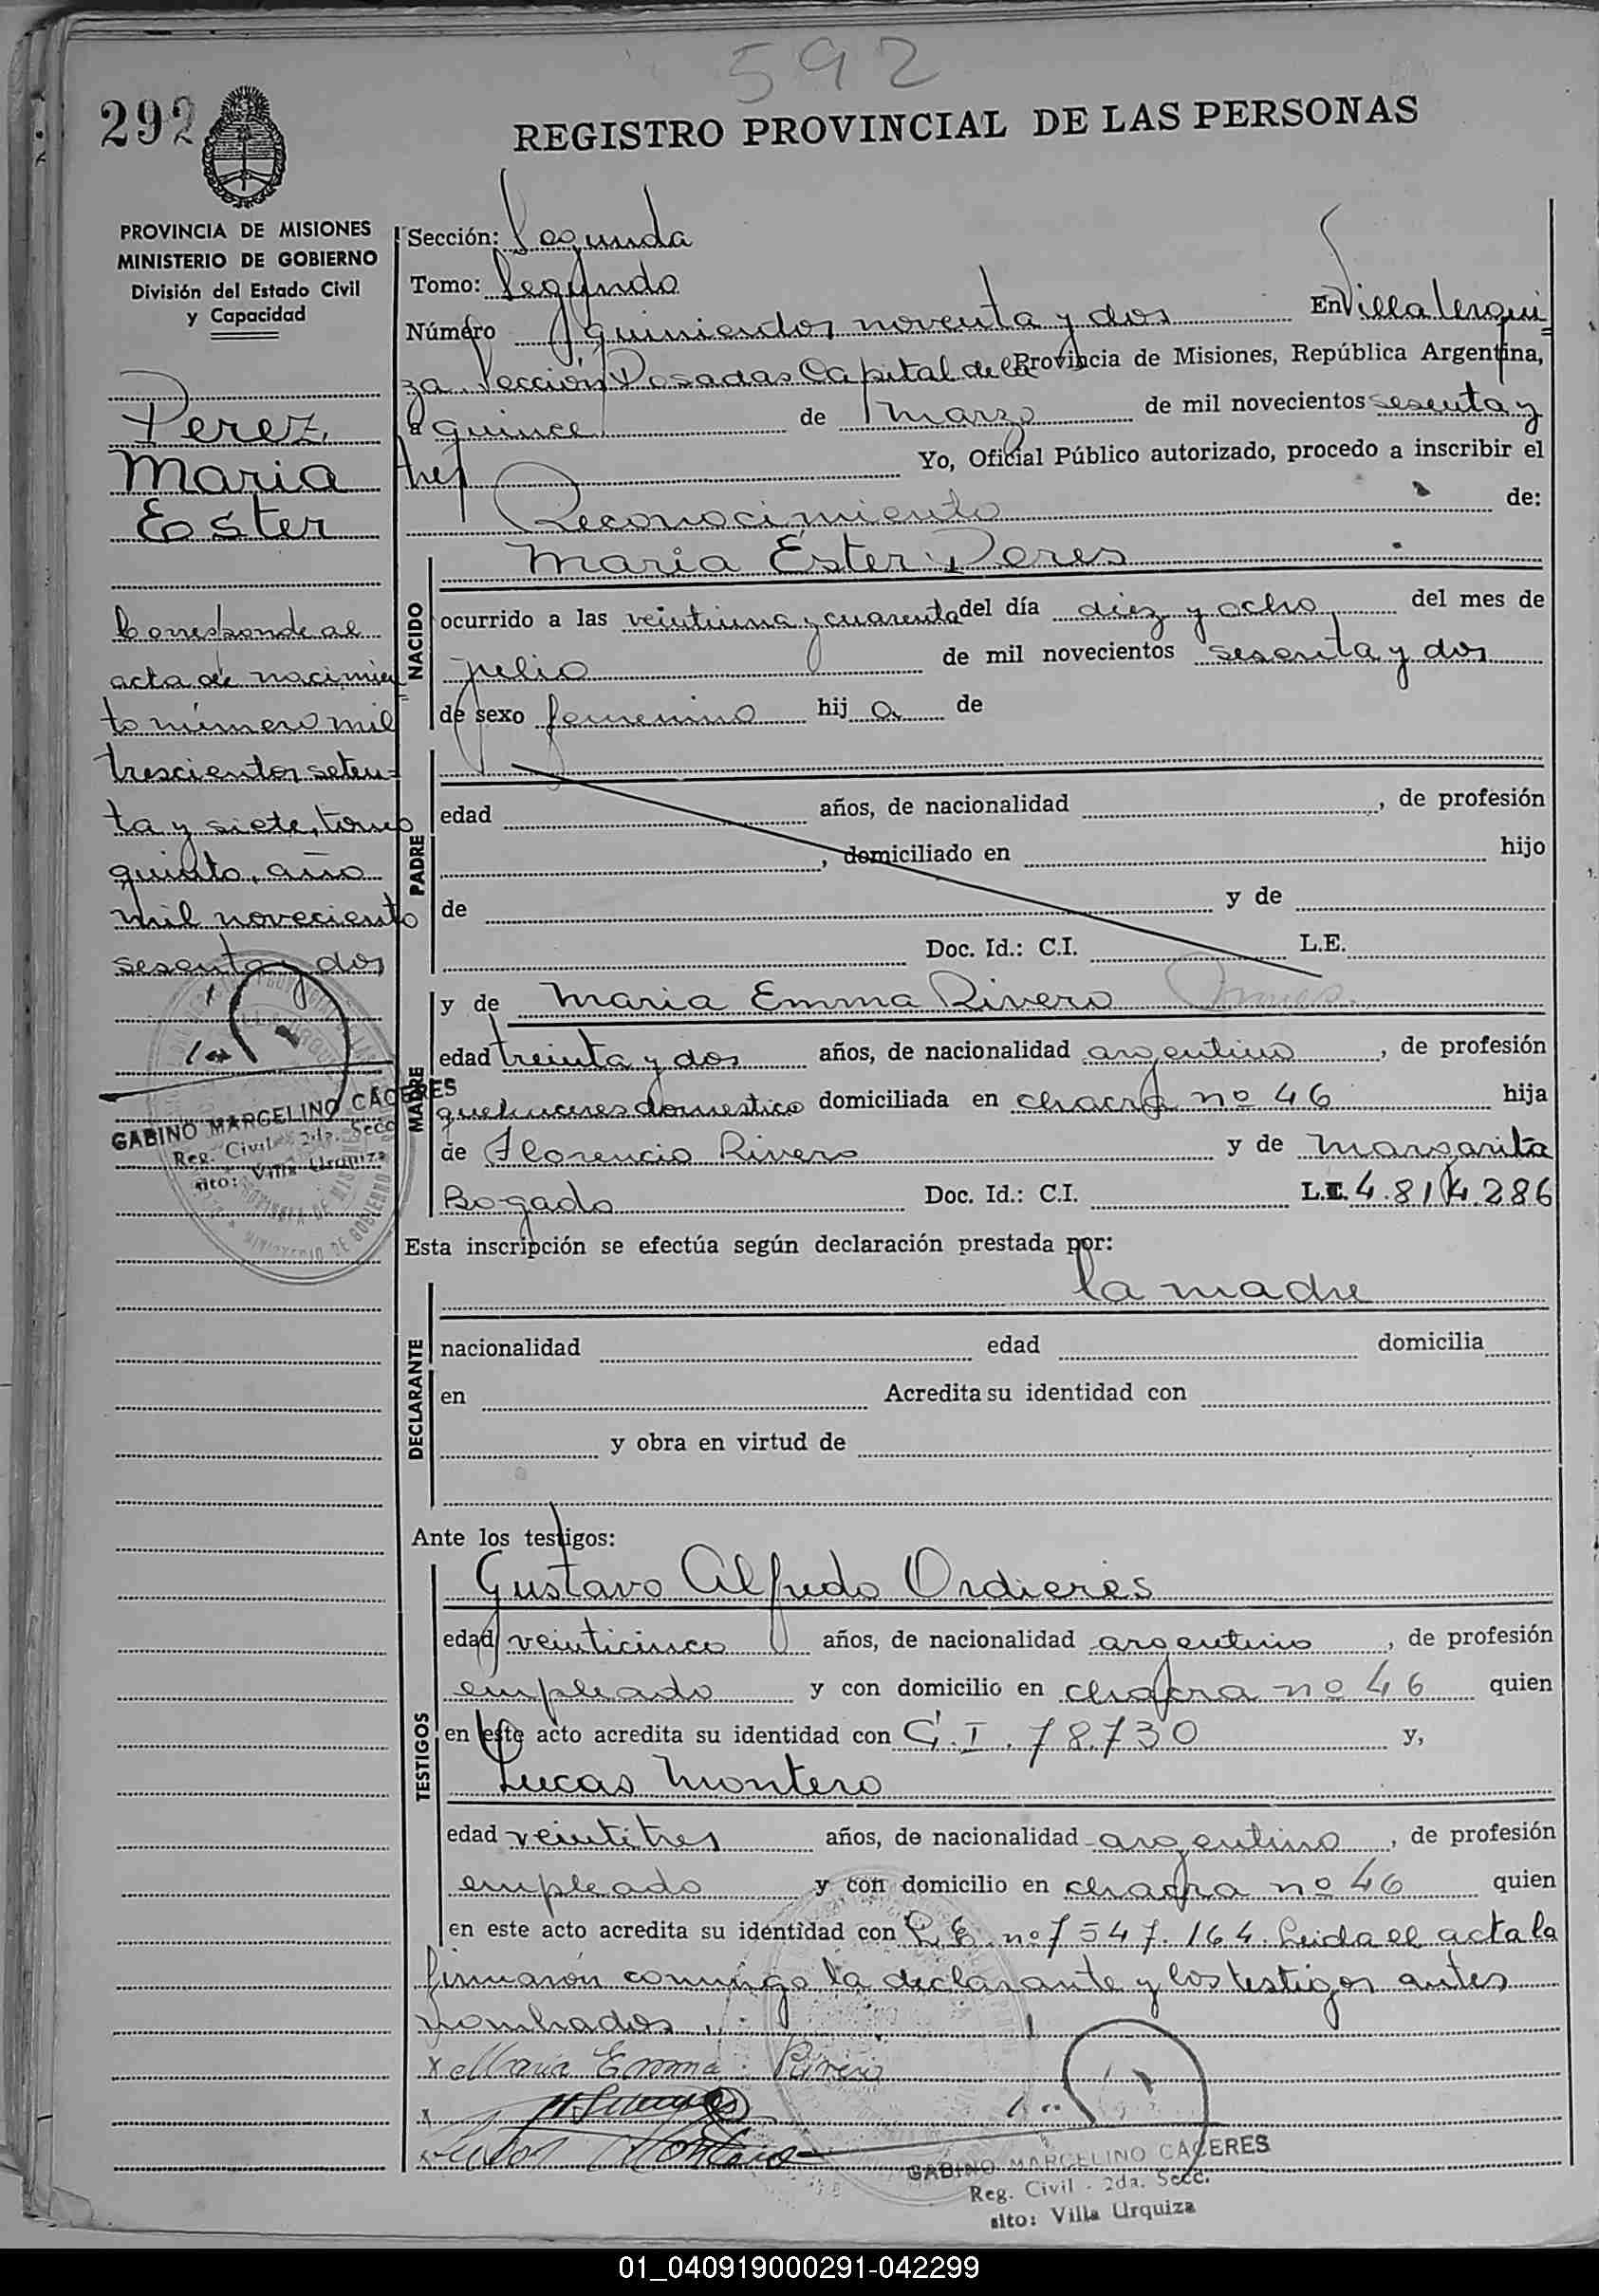 592
292
REGISTRO PROVINCIAL DE LAS PERSONAS
PROVINCIA DE MISIONES
MINISTERIO DE GOBIERNO
División del Estado Civil
y Capacidad
Perez
Maria
Ester
Corresponde al
acta de nacimien
to número mil
trescientos seten-
ta y siete, tomo
quinto, año
mil noveciento
sesenta y dos
GABINO MARCELINO CÁCERES
Reg. Civil 2da. Secc
Villa Urquiza
Sección: Segunda
Tomo: Segundo
Número quinientos noventa y dos En Villa Urqui
za Sección Posadas Capital de la Provincia de Misiones, República Argentina,
a quince de marzo de mil novecientos sesenta y
tres Yo, Oficial Público autorizado, procedo a inscribir el
Reconocimiento de:
NACIDO
Maria Ester Peres
ocurrido a las veintiuna y cuarenta del día diez y ocho del mes de
julio de mil novecientos sesenta y dos
de sexo femenino hij a de
PADRE
edad años, de nacionalidad , de profesión
, domiciliado en hijo
de y de
Doc. Id.: C.I. L.E.
MADRE
y de Maria Emma Rivero
edad treinta y dos años, de nacionalidad argentina , de profesión
quehaceres domestico domiciliada en chacra no 46 hija
de Florencio Rivero y de Margarita
Bogado Doc. Id.: C.I. L.C. 4.814.286
Esta inscripción se efectúa según declaración prestada por:
la madre
DECLARANTE
nacionalidad edad domicilia
en Acredita su identidad con
y obra en virtud de
Ante los testigos:
TESTIGOS
Gustavo Alfredo Ordieres
edad veinticinco años, de nacionalidad argentino , de profesión
empleado y con domicilio en chacra no 46 quien
en este acto acredita su identidad con C.I. 78.730 y,
Lucas Montero
edad veintitres años, de nacionalidad argentino , de profesión
empleado y con domicilio en chacra no 46 quien
en este acto acredita su identidad con L.E. no 7547.164. Leida el acta la
firmaron conmigo la declarante y los testigos antes
nombrados
x Maria Emma Rivero
x
x Lucas Montero
GABINO MARCELINO CÁCERES
Reg. Civil - 2da. Secc.
Villa Urquiza
01_040919000291-042299